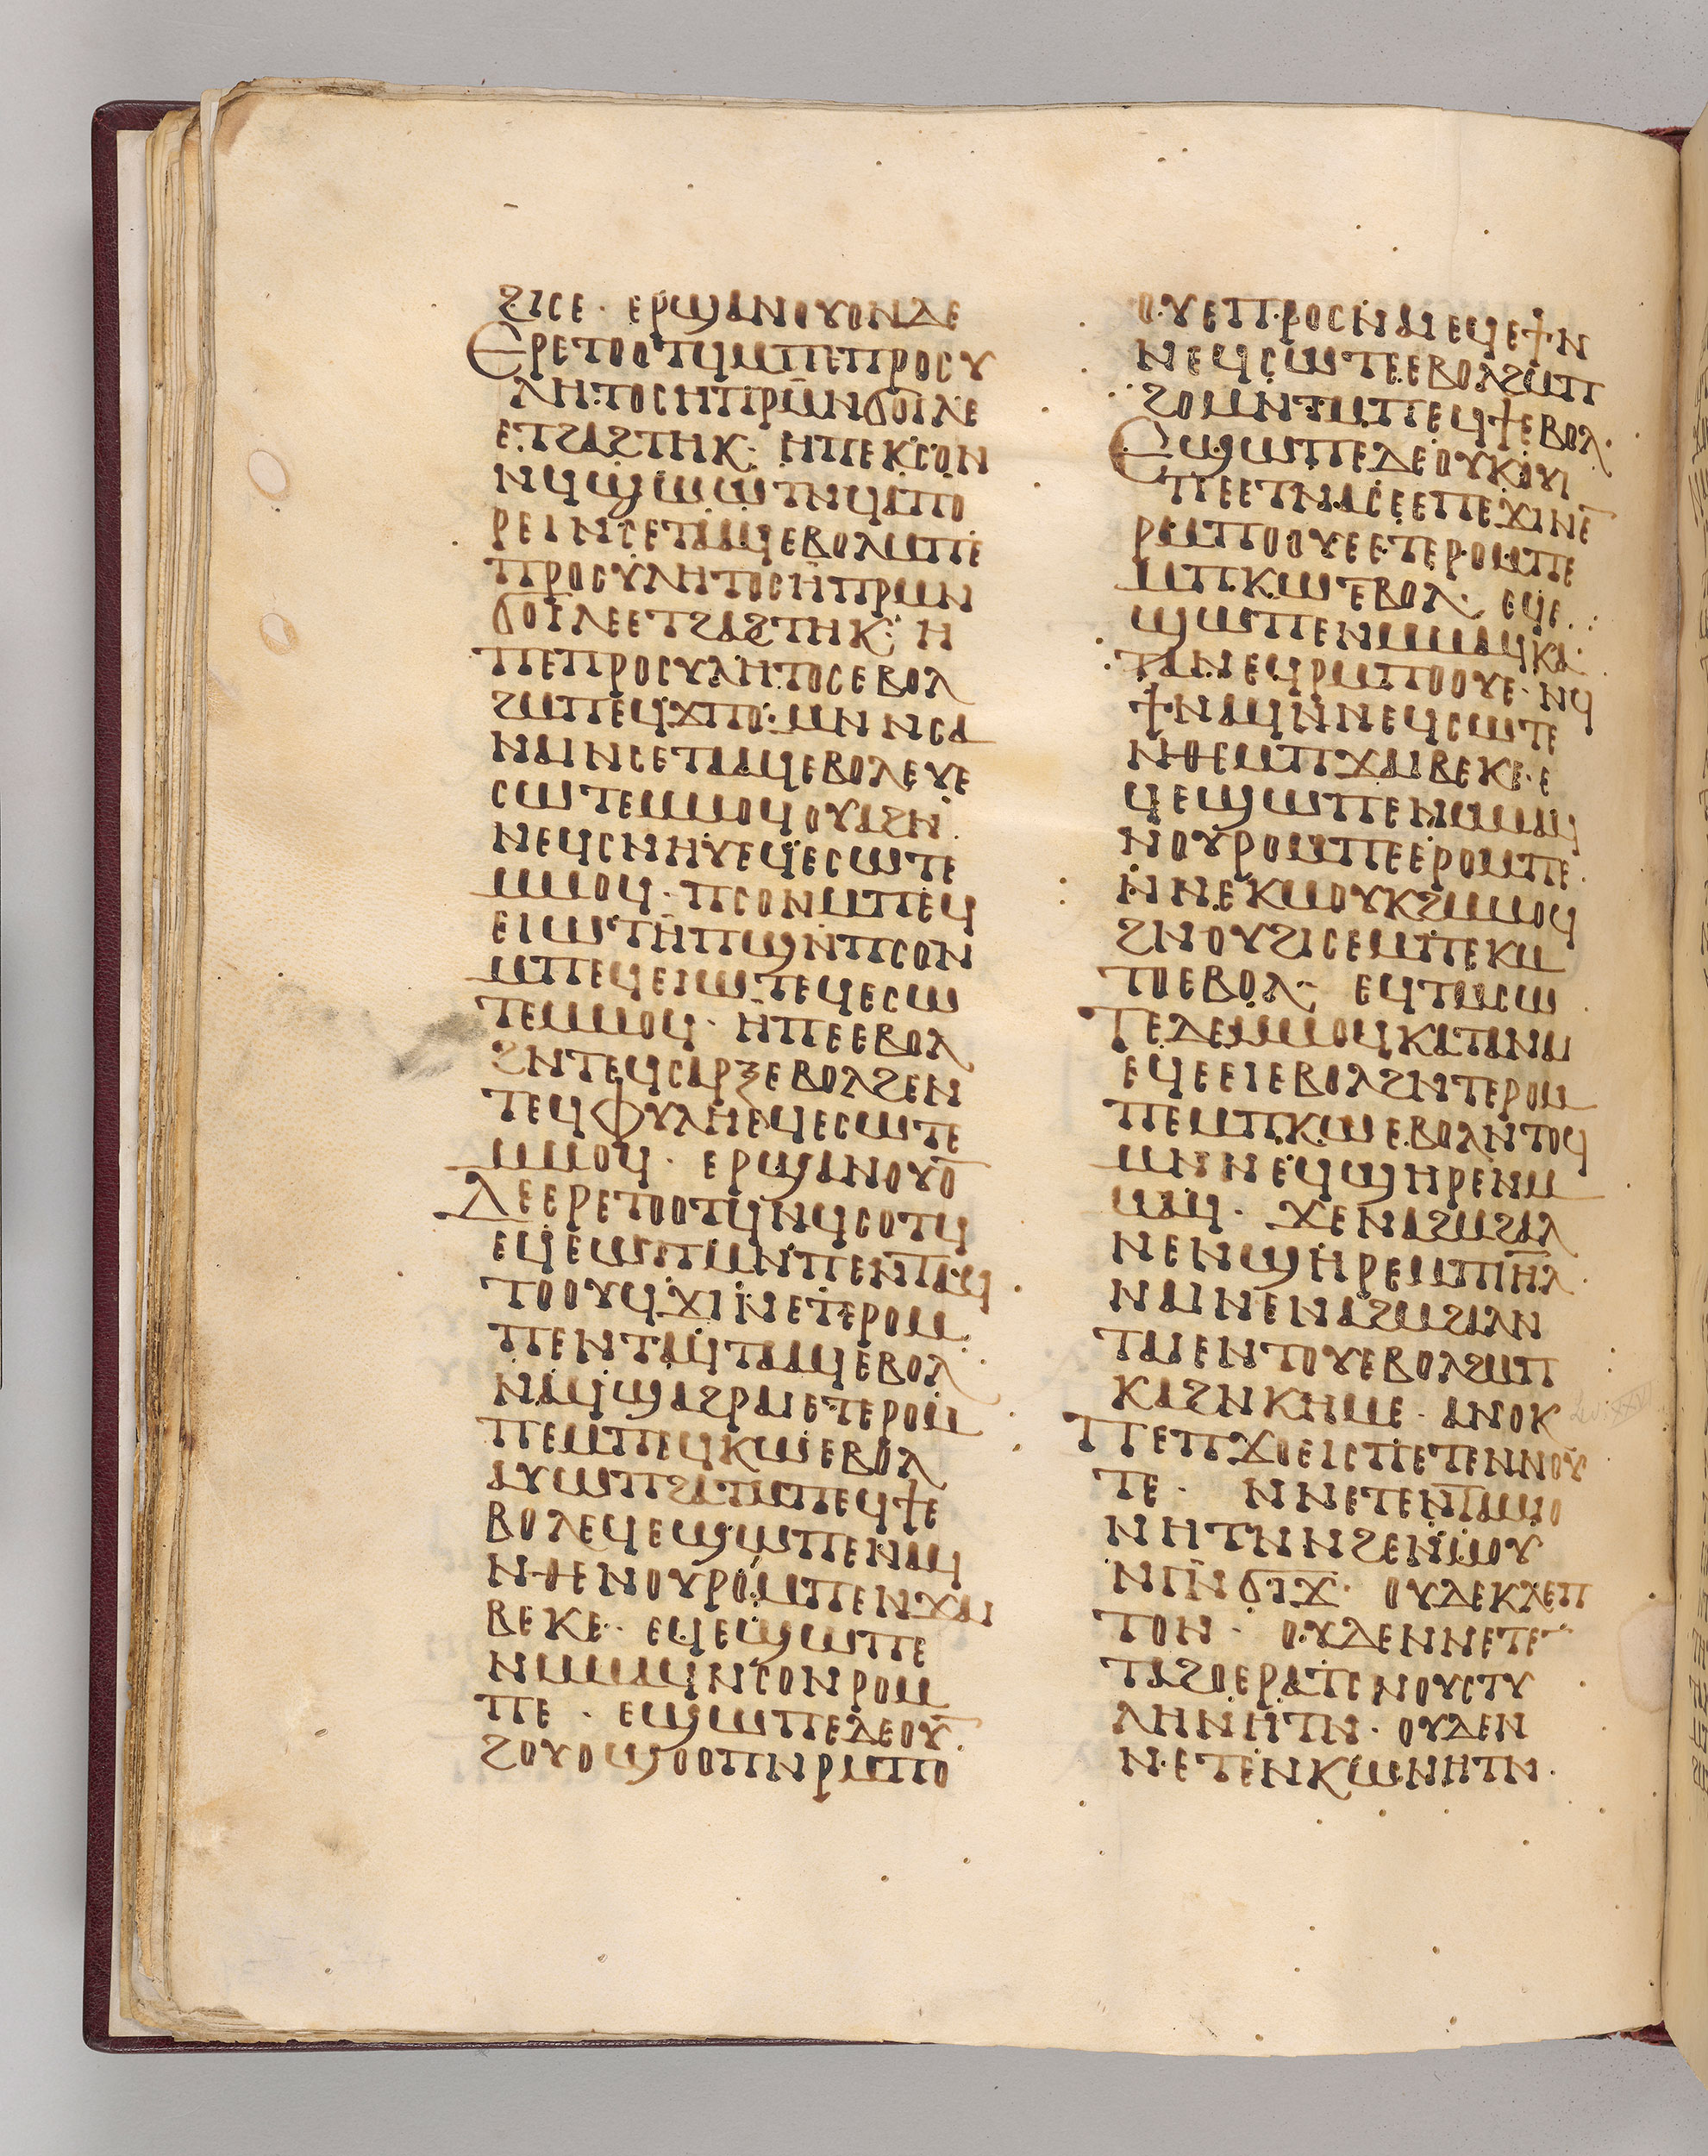 ϩⲓⲥⲉ · ⲉⲣϣⲁⲛⲟⲩⲟⲛⲇⲉ
ⲉⲣⲉⲧⲟⲟⲧϥⲙⲡⲉⲡⲣⲟⲥⲩ
ⲗⲏⲧⲟⲥⲏⲡⲣⲙⲛϭⲟⲓⲗⲉ
ⲉⲧϩⲁϩⲧⲏⲕ· ⲏⲡⲉⲕⲥⲟⲛ
ⲛϥϣⲱⲱⲧⲛϥⲁⲡⲟ
ⲣⲉⲓⲛⲥⲉⲧⲁⲁϥⲉⲃⲟⲗⲙⲡⲉ
ⲡⲣⲟⲥⲩⲗⲏⲧⲟⲥⲏⲡⲣⲙⲛ
ϭⲟⲓⲗⲉⲉⲧϩⲁϩⲧⲏⲕ· ⲏ
ⲡⲉⲡⲣⲟⲥⲩⲗⲏⲧⲟⲥⲉⲃⲟⲗ
ϩⲙⲡⲉϥϫⲡⲟ· ⲙⲛⲛⲥⲁ
ⲛⲁⲓⲛⲥⲉⲧⲁⲁϥⲉⲃⲟⲗⲉⲩⲉ
ⲥⲱⲧⲉⲙⲙⲟϥⲟⲩⲁϩⲛ
ⲛⲉϥⲥⲛⲏⲩⲉϥⲉⲥⲱⲧⲉ
ⲙⲙⲟϥ· ⲡⲥⲟⲛⲙⲡⲉϥ
ⲉⲓⲱⲧⲏⲡϣⲛⲡⲥⲟⲛ
ⲙⲡⲉϥⲉⲓⲱⲧⲉϥⲉⲥⲱ
ⲧⲉⲙⲙⲟϥ· ⲏⲡⲉⲉⲃⲟⲗ
ϩⲛⲧⲉϥⲥⲁⲣⲝⲉⲃⲟⲗϩⲉⲛ
ⲧⲉϥⲫⲩⲗⲏⲉϥⲉⲥⲱⲧⲉ
ⲙⲙⲟϥ· ⲉⲣϣⲁⲛⲟⲩⲟ̅
ⲇⲉⲉⲣⲉⲧⲟⲟⲧϥⲛϥⲥⲟⲧϥ
ⲉϥⲉⲱⲡⲙⲛⲡⲉⲛⲧⲁϥ
ⲧⲟⲟⲩϥϫⲓⲛⲉⲧⲉⲣⲟⲙ
ⲡⲉⲛⲧⲁϥⲧⲁⲁϥⲉⲃⲟⲗ
ⲛⲁϥϣⲁϩⲣⲁⲓⲉⲧⲉⲣⲟⲙ
ⲡⲉⲙⲡⲉϥⲕⲱⲉⲃⲟⲗ
ⲁⲩⲱⲡϩⲁⲧⲙⲡⲉϥϯⲉ
ⲃⲟⲗⲉϥⲉϣⲱⲡⲉⲛⲁϥ
ⲛⲑⲉⲛⲟⲩⲣⲟⲙⲡⲉⲛϫⲁⲓ
ⲃⲉⲕⲉ· ⲉϥⲉϣⲱⲡⲉ
ⲛⲙⲙⲁϥⲛⲥⲟⲛⲣⲟⲙ
ⲡⲉ · ⲉϣⲱⲡⲉⲇⲉⲟⲩ̅
ϩⲟⲩⲟϣⲟⲟⲡⲛⲣⲙⲡⲟ
ⲟⲩⲉⲡⲣⲟⲥⲛⲁⲓⲉϥⲉϯⲛ
ⲛⲉϥⲥⲱⲧⲉⲉⲃⲟⲗϩⲙⲡ
ϩⲟⲙⲛⲧⲙⲡⲉϥϯⲉⲃⲟⲗ·
ⲉϣⲱⲡⲉⲇⲉⲟⲩⲕⲟⲩⲓ
ⲡⲉⲉⲧⲛⲁⲥⲉⲉⲡⲉϫⲓⲛⲉ̅
ⲣⲙⲡⲟⲟⲩⲉⲉⲧⲉⲣⲟⲙⲡⲉ
ⲙⲡⲕⲱⲉⲃⲟⲗ· ⲉϥⲉ
ϣⲱⲡⲉⲛⲙⲙⲁϥⲕⲁ
ⲧⲁⲛⲉϥⲣⲙⲡⲟⲟⲩⲉ· ⲛϥ
ϯⲛⲁϥⲛⲛⲉϥⲥⲱⲧⲉ
ⲛⲑⲉⲙⲡϫⲁⲓⲃⲉⲕⲉ· ⲉ
ϥⲉϣⲱⲡⲉⲛⲙⲙⲁϥ
ⲛⲟⲩⲣⲟⲙⲡⲉⲉⲣⲟⲙⲡⲉ
ⲛⲛⲉⲕⲙⲟⲩⲕϩⲙⲙⲟϥ
ϩⲛⲟⲩϩⲓⲥⲉⲙⲡⲉⲕⲙ
ⲧⲟⲉⲃⲟⲗ· ⲉϥⲧⲙⲥⲱ
ⲧⲉⲇⲉⲙⲙⲟϥⲕⲁⲧⲁⲛⲁⲓ
ⲉϥⲉⲉⲓⲉⲃⲟⲗϩⲛⲧⲉⲣⲟⲙ
ⲡⲉⲙⲡⲕⲱⲉⲃⲟⲗⲛⲧⲟϥ
ⲙⲛⲛⲉϥϣⲏⲣⲉⲛⲙ
ⲙⲁϥ· ϫⲉⲛⲁϩⲙϩⲁⲗ
ⲛⲉⲛϣⲏⲣⲉⲙⲡⲓ̅ⲏ̅ⲗ
ⲛⲁⲓⲛⲉⲛⲁϩⲙϩⲁⲗⲛ
ⲧⲁⲓⲉⲛⲧⲟⲩⲉⲃⲟⲗϩⲙⲡ
ⲕⲁϩⲛⲕⲏⲙⲉ· ⲁⲛⲟⲕ
ⲡⲉⲡϫⲟⲉⲓⲥⲡⲉⲧⲉⲛⲛⲟⲩ
ⲧⲉ· ⲛⲛⲉⲧⲉⲛⲧⲁⲙⲓⲟ
ⲛⲏⲧⲛⲛϩⲉⲛⲙⲟⲩ
ⲛⲅⲛϭⲓϫ· ⲟⲩⲇⲉⲕⲗⲉⲡ
ⲧⲟⲛ· ⲟⲩⲇⲉⲛⲛⲉⲧⲉ̅
ⲧⲁϩⲟⲉⲣⲁⲧⲥⲛⲟⲩⲥⲧⲩ
ⲗⲏⲛⲏⲧⲛ· ⲟⲩⲇⲉⲛ
ⲛⲉⲧⲉⲛⲕⲱⲛⲏⲧⲛ·